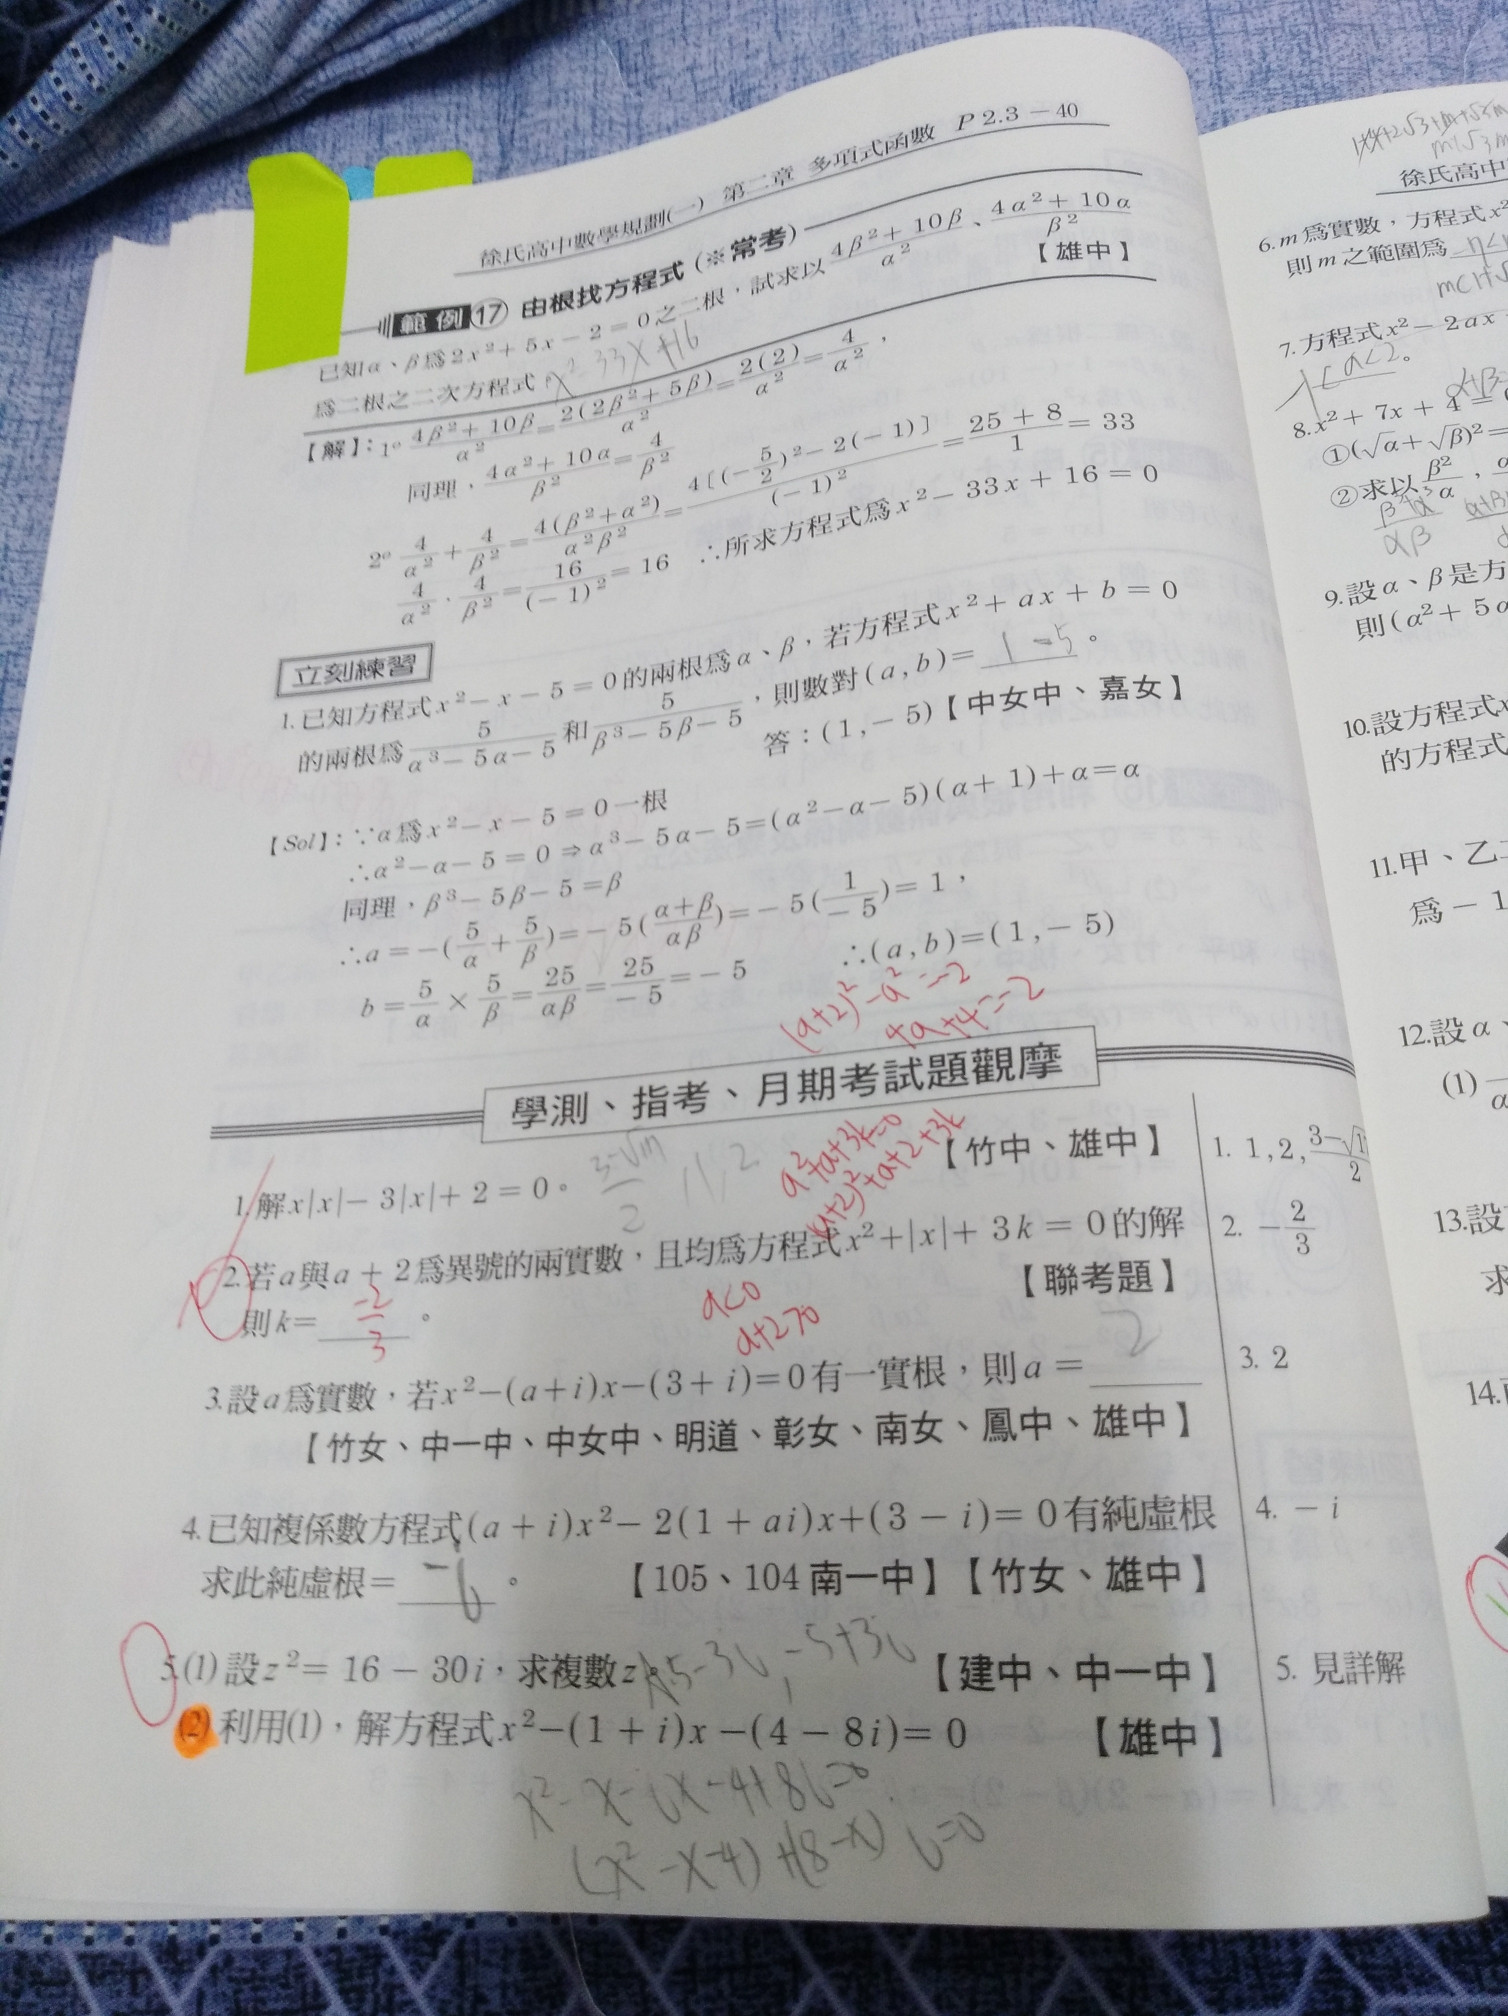 徐氏高中數學規劃(一) 第二章 多項式函數 P 2.3 - 40
範例 17 由根找方程式 (※常考)
已知α、β爲2x²+5x-2=0之二根，試求以 (4β²+10β)/α²、(4α²+10α)/β²
爲二根之二次方程式 x²-33x+16 【雄中】
【解】：1° (4β²+10β)/α² = 2(2β²+5β)/α² = 2(2)/α² = 4/α²，
同理，(4α²+10α)/β² = 4/β²
2° 4/α² + 4/β² = 4(β²+α²)/(α²β²) = 4[(-5/2)²-2(-1)]/(-1)² = (25+8)/1 = 33
4/α² · 4/β² = 16/(-1)² = 16 ∴所求方程式爲x²-33x+16=0
立刻練習
1.已知方程式x²-x-5=0的兩根爲α、β，若方程式x²+ax+b=0
的兩根爲 5/(α³-5α-5) 和 5/(β³-5β-5)，則數對(a,b)= 1 -5 。
答：(1,-5)【中女中、嘉女】
【Sol】：∵α爲x²-x-5=0一根
∴α²-α-5=0⇒α³-5α-5=(α²-α-5)(α+1)+α=α
同理，β³-5β-5=β
∴a=-(5/α+5/β)=-5((α+β)/αβ)=-5(1/-5)=1，
b=5/α×5/β=25/αβ=25/-5=-5 ∴(a,b)=(1,-5)
(a+2)²-a²=-2
4a+4=-2
學測、指考、月期考試題觀摩
1.解x|x|-3|x|+2=0。 1,2 【竹中、雄中】
1. 1,2,
a²+a+3k=0
(a+2)²+a+2+3k
2.若a與a+2爲異號的兩實數，且均爲方程式x²+|x|+3k=0的解
則k= -2/3 。 【聯考題】
2. -2/3
a<0
a+2>0
3.設a爲實數，若x²-(a+i)x-(3+i)=0有一實根，則a= 2
3. 2
【竹女、中一中、中女中、明道、彰女、南女、鳳中、雄中】
4.已知複係數方程式(a+i)x²-2(1+ai)x+(3-i)=0有純虛根
4. -i
求此純虛根= -i 。 【105、104南一中】【竹女、雄中】
5.(1)設z²=16-30i，求複數z。 5-3i, -5+3i 【建中、中一中】
5. 見詳解
(2)利用(1)，解方程式x²-(1+i)x-(4-8i)=0 【雄中】
x²-x-ix-4+8i=0
(x²-x-4)+(8-x)i=0
徐氏高中
6.m爲實數，方程式x²
則m之範圍爲
7.方程式x²-2ax
1<a<2。
8.x²+7x+4=
①(√α+√β)²=
②求以β²/α，
9.設α、β是方
則(α²+5α
10.設方程式x
的方程式
11.甲、乙
爲-1
12.設α、
(1)
13.設
求
14.